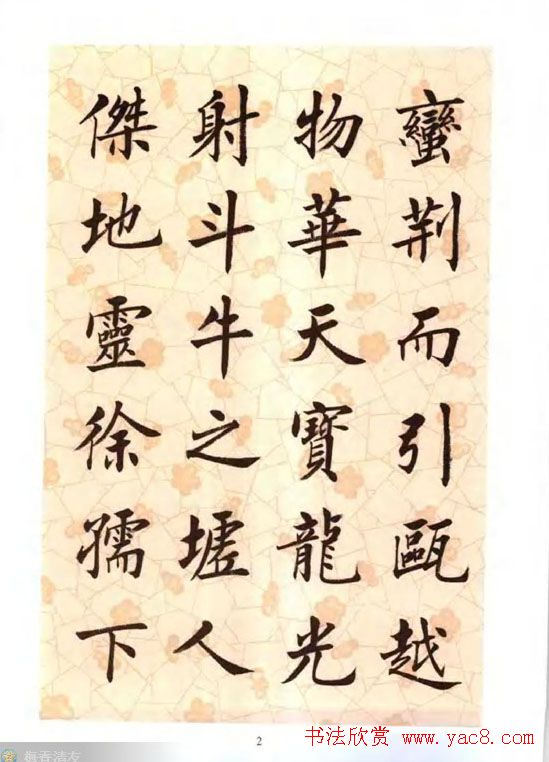 蠻荆而引甌越
物華天寶龍光
射斗牛之墟人
傑地靈徐孺下
2
书法欣赏 www.yac8.com
梅香清友